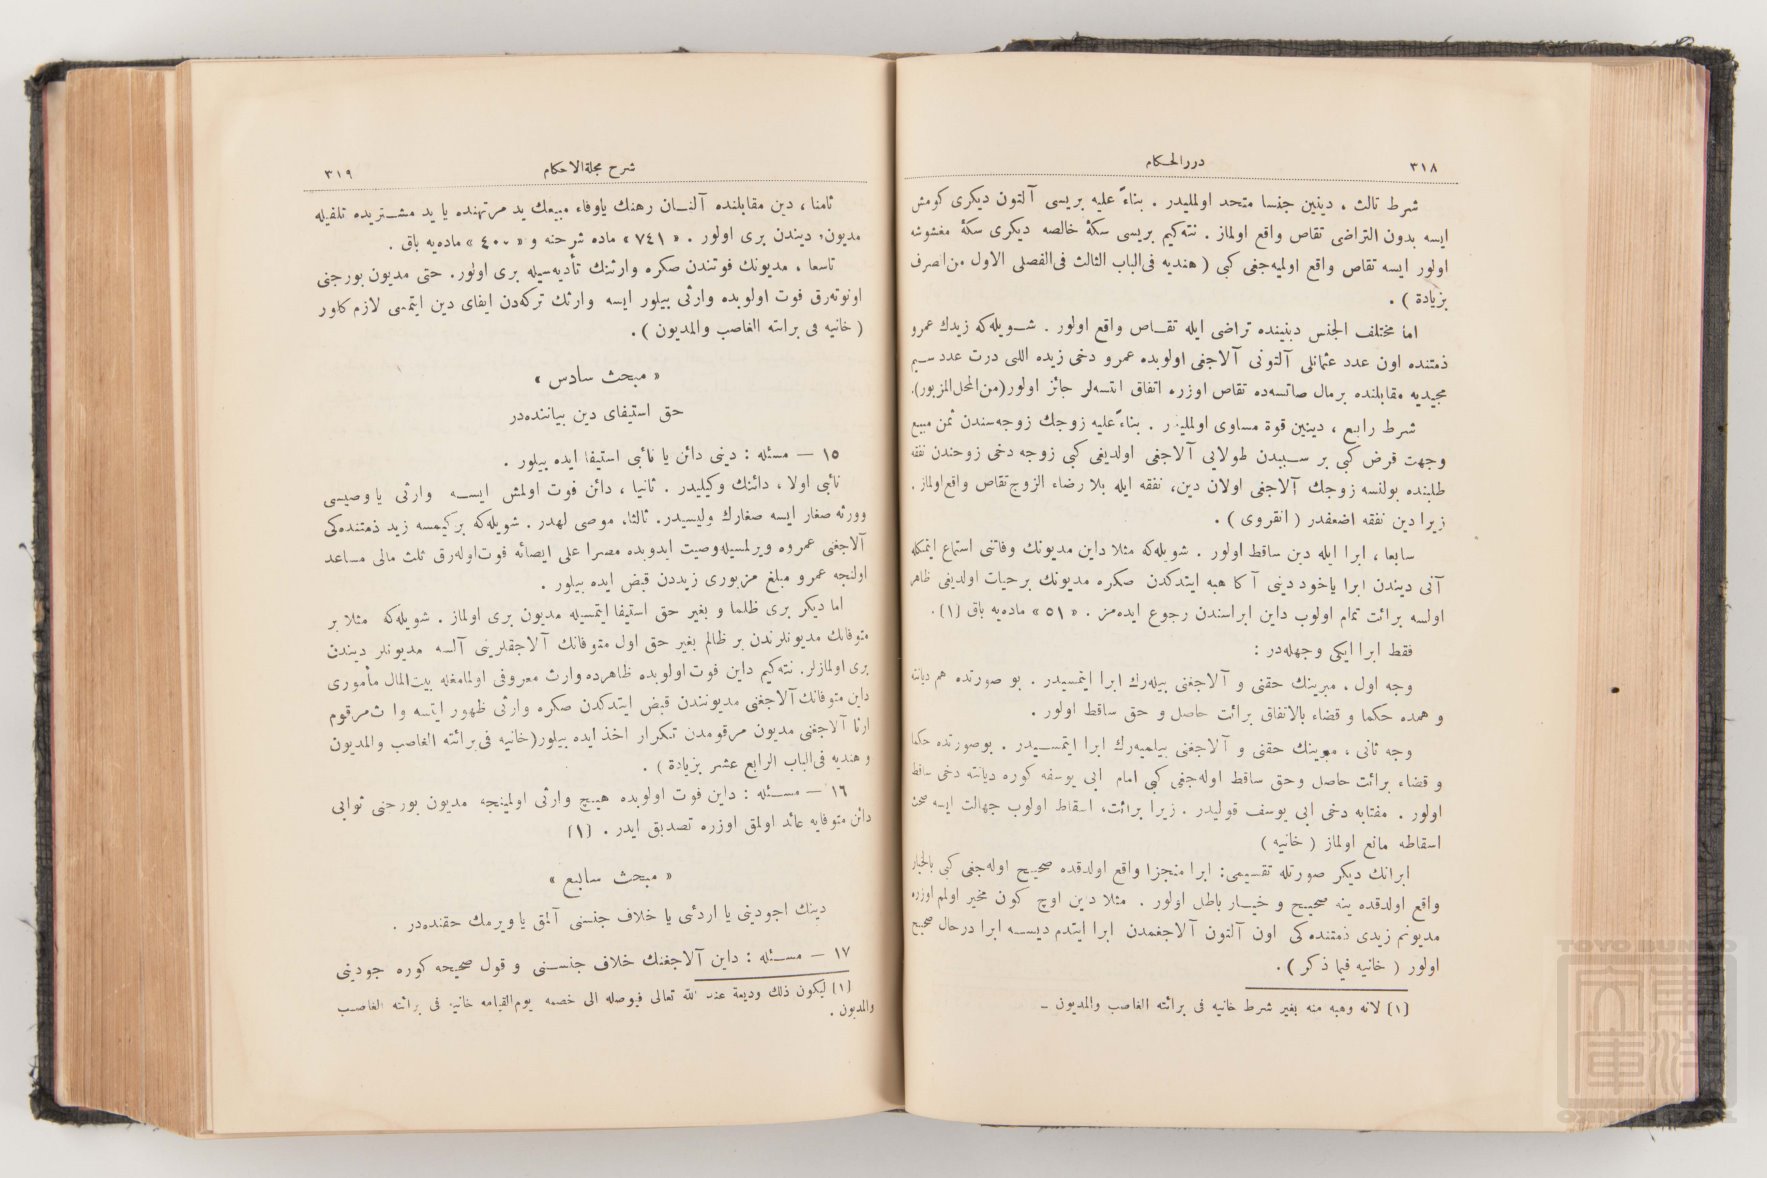 ٣١٨
دررالحكام
شرط ثالث ، دينين جنسا متحد اولمليدر . بناءً عليه بريسى آلتون ديكرى كومش
ايسه بدون التراضى تقاص واقع اولماز . نته‌كيم بريسى سكهٔ خالصه ديكرى سكهٔ مغشوشه
اولور ايسه تقاص واقع اوليه‌جغى كبى ( هنديه فى‌الباب الثالث فى‌الفصلى الاول من‌الصرف
بزيادة ) .
اما مختلف الجنس دينينده تراضى ايله تقـاص واقع اولور . شـويله‌كه زيدك عمرو
ذمتنده اون عدد عثمانلى آلتونى آلاجغى اولوبده عمرو دخى زيده اللى درت عدد سـيم
مجيديه مقابلنده برمال صاتسه‌ده تقاص اوزره اتفاق ايتسه‌لر جائز اولور(من‌المحل‌المزبور).
شرط رابـع ، دينين قوة مساوى اولمليدر . بناءً عليه زوجك زوجه‌سندن ثمن مبيع
وجهت قرض كبى بر سـببدن طولايى آلاجغى اولديغى كبى زوجه دخى زوجندن نفقه
طلبنده بولنسه زوجك آلاجغى اولان دين، نفقه ايله بلا رضاء الزوج تقاص واقع اولماز .
زيرا دين نفقه اضعفدر ( انقروى ) .
سابعا ، ابرا ايله دين ساقط اولور . شويله‌كه مثلا داين مديونك وفاتنى استماع ايتمكله
آنى ديندن ابرا ياخود دينى آكا هبه ايتدكدن صكره مديونك برحيات اولديغى ظاهر
اولسه برائت تمام اولوب داين ابراسندن رجوع ايده‌مز . « ٥١ » ماده‌يه باق [١] .
فقط ابرا ايكى وجهله‌در :
وجه اول ، مبرينك حقنى و آلاجغنى بيله‌رك ابرا ايتمسيدر . بو صورتده هم ديانة
و همده حكما و قضاء بالاتفاق برائت حاصل و حق ساقط اولور .
وجه ثانى ، مبرينك حقنى و آلاجغنى بيلميه‌رك ابرا ايتمسـيدر . بوصورتده حكما
و قضاء برائت حاصل وحق ساقط اوله‌جغى كبى امام ابى يوسفه كوره ديانته دخى ساقط
اولور . مفتابه دخى ابى يوسف قوليدر . زيرا برائت، اسقاط اولوب جهالت ايسه صحت
اسقاطه مانع اولماز ( خانيه )
ابرانك ديكر صورتله تقسيمى: ابرا منجزا واقع اولدقده صحيـح اوله‌جغى كبى بالخيار
واقع اولدقده ينه صحيـح و خيـار باطل اولور . مثلا دين اوچ كون مخير اولم اوزره
مديونم زيدى ذمتنده‌كى اون آلتون آلاجغمدن ابرا ايتدم ديسـه ابرا درحال صحيح
اولور ( خانيه فيما ذكر ) .
[١] لانه وهبه منه بغير شرط خانيه فى برائته الغاصب والمديون ـ
شرح مجلةالاحكام
٣١٩
ثامنا ، دين مقابلنده آلنـان رهنك ياوفاء مبيعك يد مرتهنده يا يد مشـتريده تلفيله
مديون، ديندن برى اولور . « ٧٤١ » ماده شرحنه و « ٤٠٠ » ماده‌يه باق .
تاسعا ، مديونك فوتندن صكره وارثنك تأديه‌سيله برى اولور. حتى مديون بورجنى
اونوته‌رق فوت اولوبده وارثى بيلور ايسه وارثك تركه‌دن ايفاى دين ايتمسى لازم كلور
( خانيه فى برائته الغاصب والمديون ) .
« مبحث سادس »
حق استيفاى دين بياننده‌در
١٥ — مسئله : دينى دائن يا نائبى استيفا ايده بيلور .
نائبى اولا ، دائنك وكيليدر . ثانيا ، دائن فوت اولمش ايسـه وارثى يا وصيسى
وورثه صغار ايسه صغارك وليسيدر. ثالثا، موصى لهدر . شويله‌كه بركيمسه زيد ذمتنده‌كى
آلاجغنى عمروه ويرلمسيله‌وصيت ايدوبده مصرا على ايصائه فوت‌اوله‌رق ثلث مالى مساعد
اولنجه عمرو مبلغ مزبورى زيددن قبض ايده بيلور .
اما ديكر برى ظلما و بغير حق استيفا ايتمسيله مديون برى اولماز . شويله‌كه مثلا بر
متوفانك مديونلرندن بر ظالم بغير حق اول متوفانك آلاجقلرينى آلسه مديونلر ديندن
برى اولمازلر. نته‌كيم داين فوت اولوبده ظاهرده وارث معروفى اولمامغله بيت‌المال مأمورى
داين متوفانك آلاجغنى مديونندن قبض ايتدكدن صكره وارثى ظهور ايتسه وارث مرقوم
ارثا آلاجغنى مديون مرقومدن تكرار اخذ ايده بيلور(خانيه فى‌برائته الغاصب والمديون
و هنديه فى‌الباب الرابع عشر بزيادة ) .
١٦ — مسـئله : داين فوت اولوبده هيـچ وارثى اولمينجه مديون بورجنى ثوابى
دائن متوفايه عائد اولمق اوزره تصديق ايدر . [١]
« مبحث سابـع »
دينك اجودينى يا اردئنى يا خلاف جنسنى آلمق يا ويرمك حقنده‌در .
١٧ — مسـئله : داين آلاجغنك خلاف جنسـنى و قول صحيحه كوره جودينى
[١] ليكون ذلك وديعة عند الله تعالى فيوصله الى خصمه يوم القيامه خانيه فى برائته الغاصـب
والمديون .
TOYO BUNKO